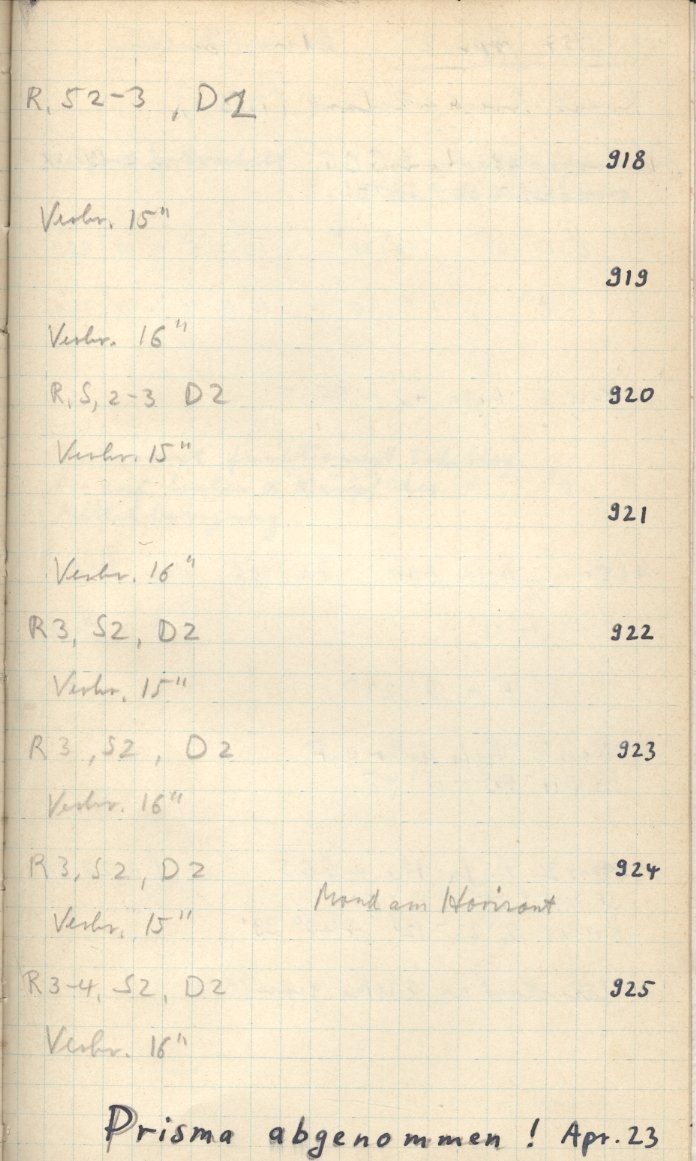 R, S2-3, D1
918
Verbr. 15"
919
Verbr. 16"
R, S, 2-3 D2 920
Verbr. 15"
921
Verbr. 16"
R3, S2, D2 922
Verbr. 15"
R3, S2, D2 923
Verbr. 16"
R3, S2, D2 924
Mond am Horizont
Verbr. 15"
R3-4, S2, D2 925
Verbr. 16"
Prisma abgenommen ! Apr. 23